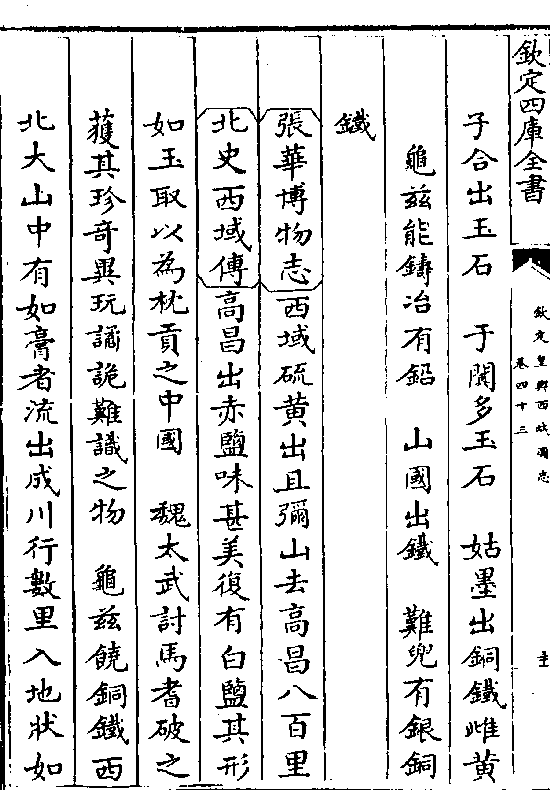 欽定四庫全書
欽定皇輿西域圖志
卷四十三
子合出玉石　于闐多玉石　姑墨出銅鐵雌黄
龜兹能鑄冶有鉛　山國出鐵　難兜有銀銅
鐵
張華博物志西域硫黄出且彌山去高昌八百里
北史西域傳高昌出赤鹽味甚美復有白鹽其形
如玉取以為枕貢之中國　魏太武討焉耆破之
獲其珍奇異玩譎詭難識之物　龜兹饒銅鐵西
北大山中有如膏者流出成川行數里入地狀如